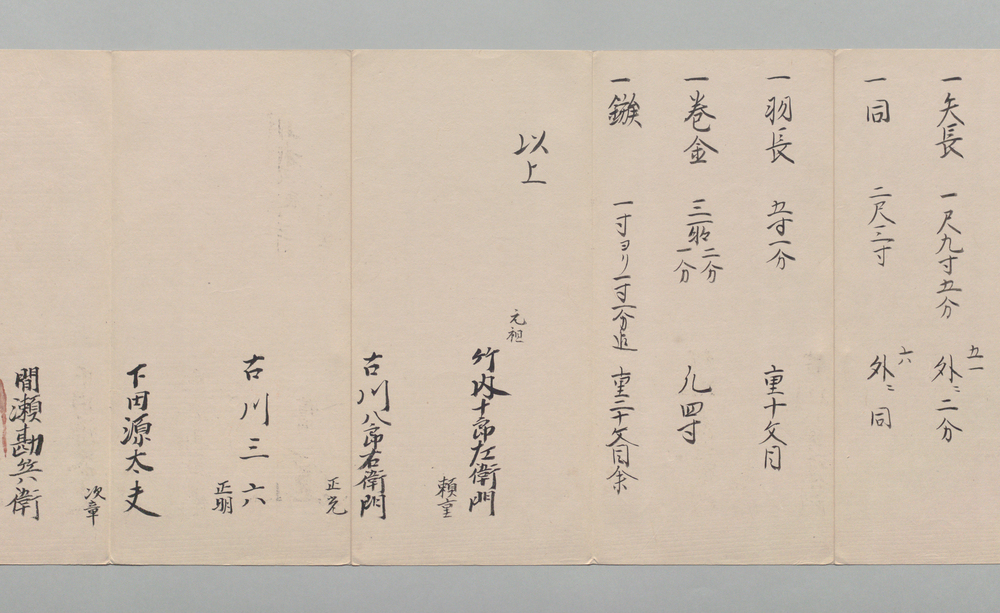 一矢長 一尺九寸五分 五一 外ニ 二分
一同 二尺二寸 六 外ニ 同
一羽長 五寸一分 重十文目
一巻金 二分 一分 四寸
一鏃 一寸ヨリ一寸二分迄 重二十文目余
以上
元祖
竹内十郎左衛門
頼重
古川八郎右衛門
正光
古川三六
正明
下田源太夫
次章
間瀬勘兵衛